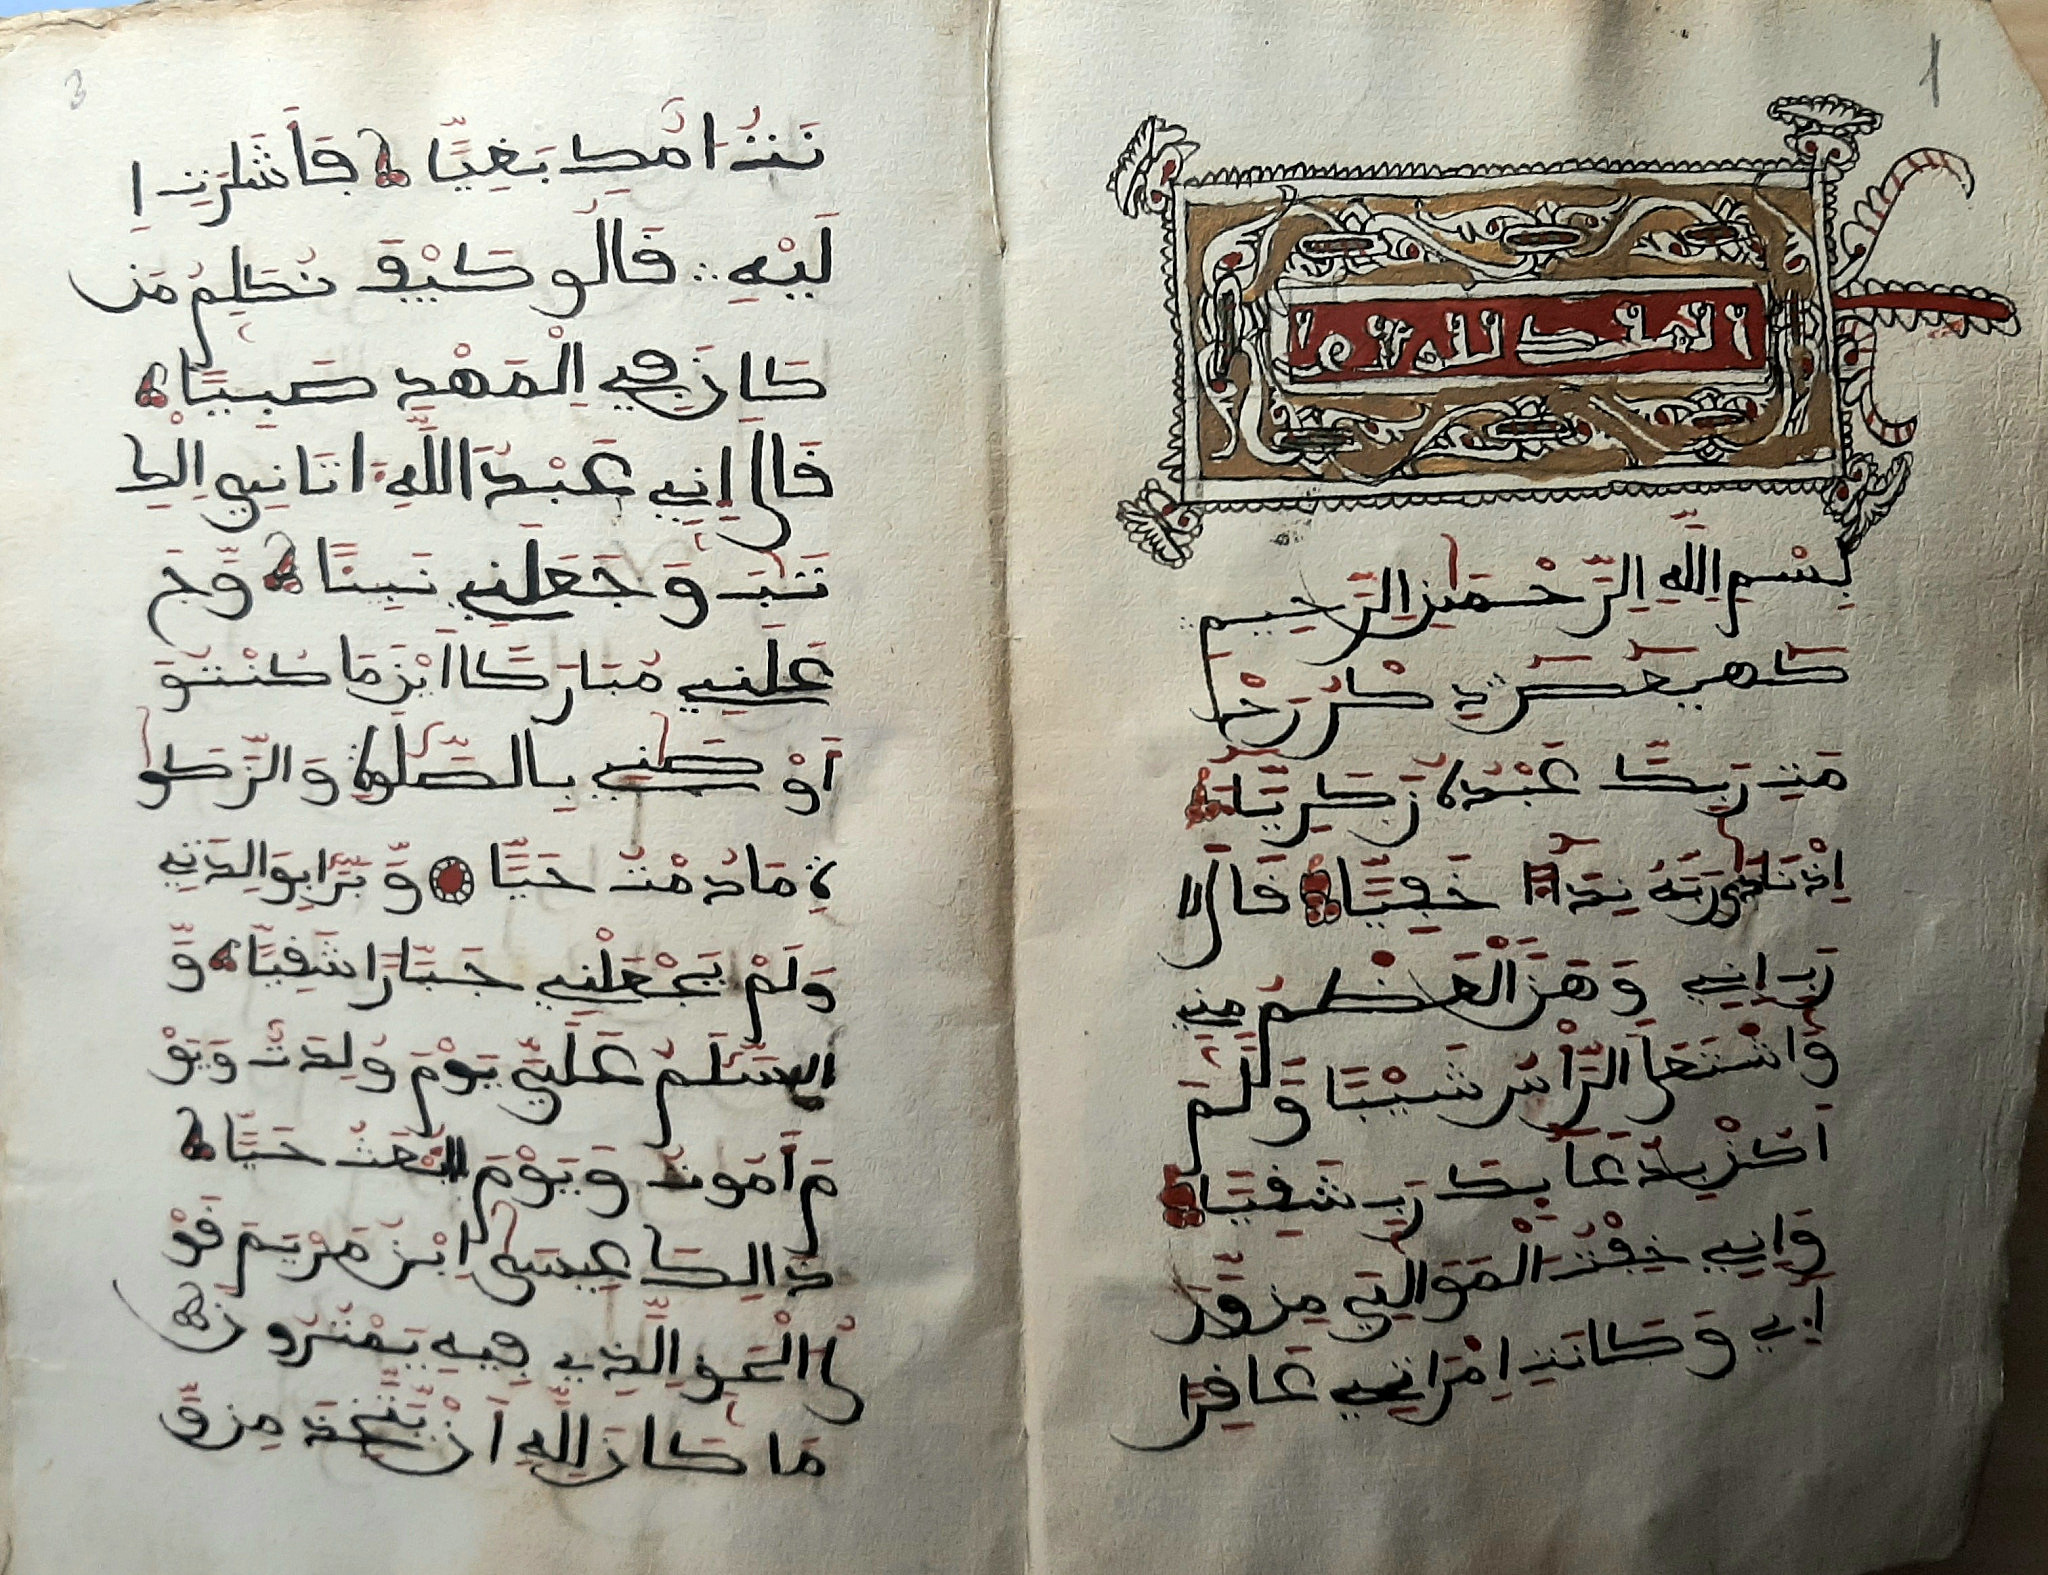 1
الحمد لله
بِسْمِ اللَّهِ الرَّحْمَٰنِ الرَّحِيمِ
كَهيعصٓ ذِكْرُ رَحْ
مَتِ رَبِّكَ عَبْدَهُ زَكَرِيَّآءَ
اِذْ نَادَىٰ رَبَّهُ نِدَآءً خَفِيًّا قَالَ
رَبِّ اِنِّي وَهَنَ الْعَظْمُ مِنِّي
وَاشْتَعَلَ الرَّأْسُ شَيْبًا وَّلَمَ
اَكُنْ بِدُعَآئِكَ رَبِّ شَقِيًّا
وَاِنِّي خِفْتُ الْمَوَالِيَ مِن وَّرَ
اءِي وَكَانَتِ اِمْرَاتِي عَاقِرًا
3
نَتُ اُمُّكِ بَغِيًّا فَأَشَارَتِ ا
لَيْهِ قَالُو كَيْفَ نُكَلِّمُ مَن
كَانَ فِي الْمَهْدِ صَبِيًّا
قَالَ اِنِّي عَبْدُ اللَّهِ اتَانِيَ الْكِ
تَٰبَ وَجَعَلَنِي نَبِيًّا وَّجَ
عَلَنِي مُبَارَكًا اَيْنَ مَا كُنْتُ وَ
أَوْصَٰنِي بِالصَّلَوٰةِ وَالزَّكَو
ٰةِ مَا دُمْتُ حَيًّا وَّبَرًّا بِوَالِدَتِي
وَلَمْ يَجْعَلْنِي جَبَّارًا شَقِيًّا وَّ
السَّلَٰمُ عَلَيَّ يَوْمَ وُلِدتُّ وَيَوْ
مَ أَمُوتُ وَيَوْمَ اُبْعَثُ حَيًّا
ذَالِكَ عِيسَى ابْنُ مَرْيَمَ قَوْ
لُ الْحَقِّ الَّذِي فِيهِ يَمْتَرُونَ
مَا كَانَ لِلَّهِ أَنْ يَّتَّخِذَ مِن وَّ